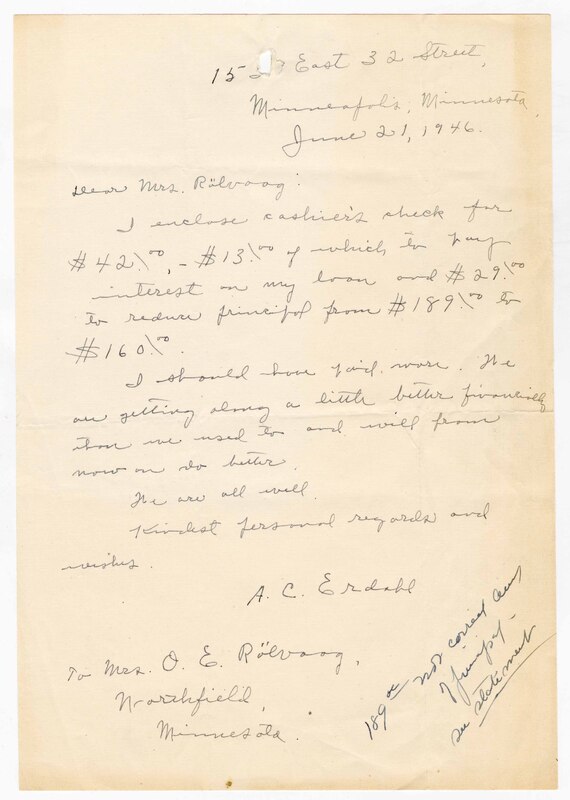 15 East 32 Street,
Minneapolis, Minnesota,
June 21, 1946.
Dear Mrs. Rölvaag:
I enclose cashier's check for
$42.00, - $13.00 of which to pay
interest on my loan and $29.00
to reduce principal from $189.00 to
$160.00.
I should have paid more. We
are getting along a little better financially
than we used to and will from
now on do better.
We are all well.
Kindest personal regards and
wishes.
A. C. Erdahl
To Mrs. O. E. Rölvaag,
Northfield,
Minnesota.
189 not correct
see statement